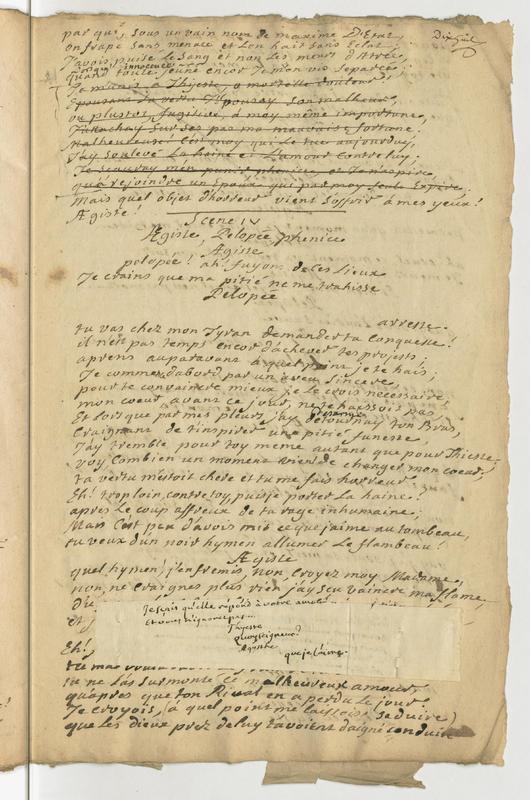 par qui, sous un vain nom de maxime D'Etat,
on frape sans menace et l'on hait sans éclat;
J'avois puisé le sang et non les meurs d'Atrée,
innocence
quand toute jeune encor Je m'en vis separée;
Je m'unis a Thieste, o mortelle douleur!
Epousant sa vertu J'Epousay son malheur,
ou plustost, fugitive, à moy même importune,
J'attachay sur ses pas ma mauvaise fortune,
Malheureuse! C'est moy qui le tue aujourduy,
J'ay soulevé La haine et L'amour Contre luy;
qu'à rejoindre un Epoux qui par moy seule Expire,
Mais quel objet d'horreur vient s'offrir à mes yeux!
Ægiste!
Scene IV
Ægiste, Pelopée, Phenice
Ægiste
pelopée! ah! fuyons de ces Lieux
Je crains que ma pitié ne me trahisse
Pelopée
arreste.
tu vas chez mon Tyran demander ta Conqueste!
il n'est pas temps encor d'achever tes projets;
aprens auparavant à quel point je te hais;
Je commence d'abord par un aveu sincere,
pour te convaincre mieux je le crois necessaire,
mon coeur avant ce jour, ne te haïssoit pas
Et lorsque par mes pleurs j'ay détournay ton Bras,
Craignant de t'inspirer une pitié funeste,
J'ay tremblé pour toy meme autant que pour Thieste,
voy Combien un moment vient de changer mon coeur,
ta vertu m'estoit chere et tu me fais horreur.
Eh! trop loin, contre toy, puis-je porter La haine!
aprés Le coup affreux de ta rage inhumaine;
Mais C'est peu d'avois mis ce que j'aime au tombeau,
tu veux d'un noir hymen allumer Le flambeau!
Ægiste
quel hymen! j'en fremis, non, Croyez moy Madame,
non, ne craignes plus rien j'ay sçu vaincre ma flame,
Je sçais qu'elle répond à votre amour
Thyeste
quoy seigneur?
Egysthe
que je l'aime.
Eh!
tu ne l'as surmonté ce malheureux amour,
qu'aprés que ton Rival en a perdu le jour.
Je croyois, (à quel point me laissois-je seduire)
que les dieux prez de luy t'avoient daigné conduire